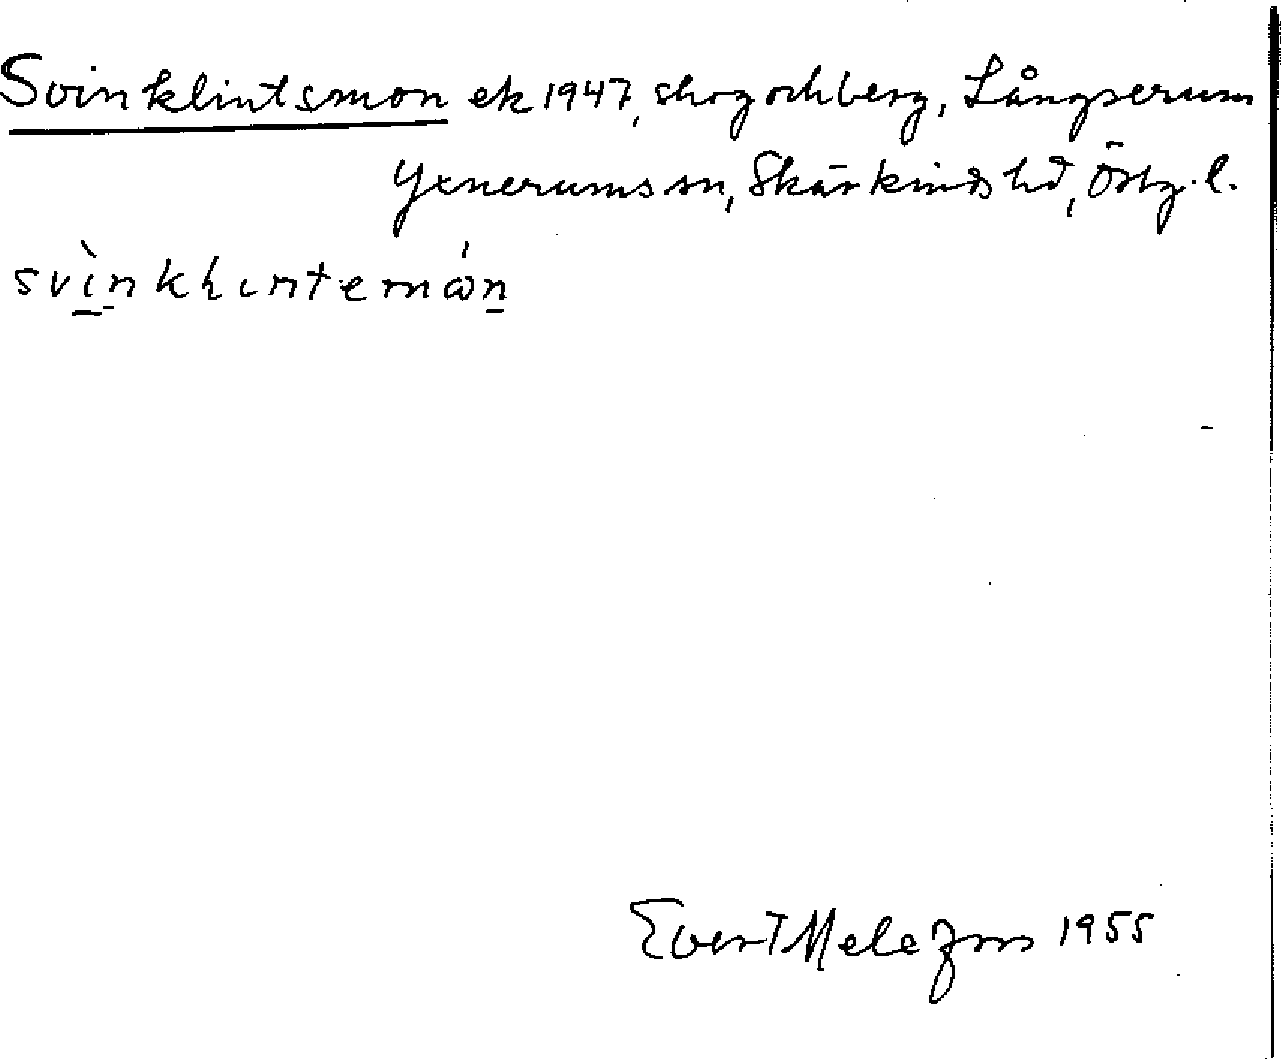 Svinklintsmon ek 1947, skog och berg, Långserum
Yxnerums sn, Skärkinds hd, Östg. l.
svìnklintemón
Evert Melefors 1955